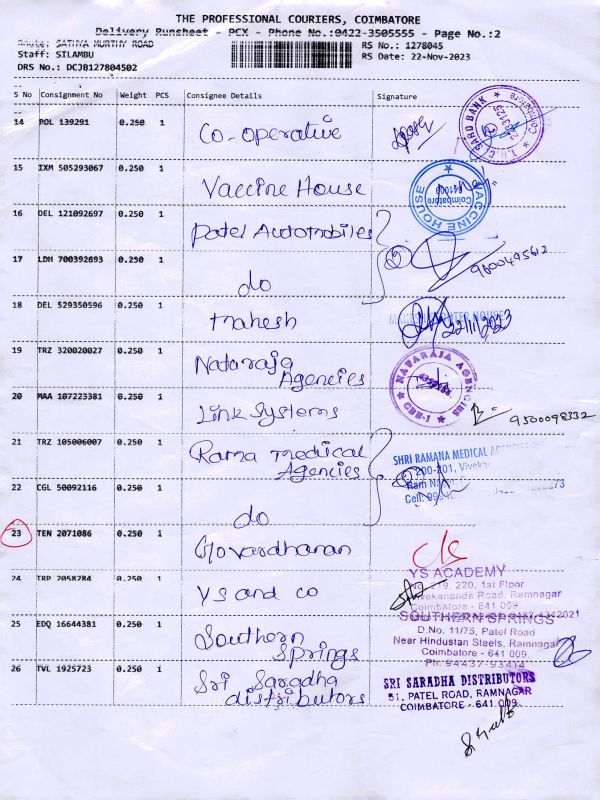 THE PROFESSIONAL COURIERS, COIMBATORE
Delivery Runsheet - PCX - Phone No.:0422-3505555 - Page No.:2
Route: SATHYA MURTHY ROAD
RS No.: 1278045
Staff: SILAMBU
RS Date: 22-Nov-2023
DRS No.: DCJB127804502
S No Consignment No Weight PCS Consignee Details Signature
14 POL 139291 0.250 1 Co-operative
15 IXM 505293067 0.250 1 Vaccine House
VACCINE HOUSE Coimbatore
16 DEL 121092697 0.250 1 Patel Automobiles
17 LDH 700392693 0.250 1 do
② 9600495612
18 DEL 529350596 0.250 1 Mahesh
22/11/2023
19 TRZ 320020027 0.250 1 Nataraja Agencies
NATARAJA AGENCIES
20 MAA 107223381 0.250 1 Link Systems
9500098332
21 TRZ 105006007 0.250 1 Rama medical Agencies
SHRI RAMANA MEDICAL AGENCIES
22 CGL 50092116 0.250 1 do
23 TEN 2071086 0.250 1 Govardhanan
24 TRP 2058284 0.250 1 YS and co
YS ACADEMY
No 219, 220, 1st Floor
Vivekananda Road, Ramnagar
Coimbatore - 641 009
25 EDQ 16644381 0.250 1 Southern Springs
SOUTHERN SPRINGS
D.No. 11/75, Patel Road
Near Hindustan Steels, Ramnagar
Coimbatore - 641 009.
Ph: 94437-93414
26 TVL 1925723 0.250 1 Sri Saradha distributors
SRI SARADHA DISTRIBUTORS
51, PATEL ROAD, RAMNAGAR
COIMBATORE - 641 009.